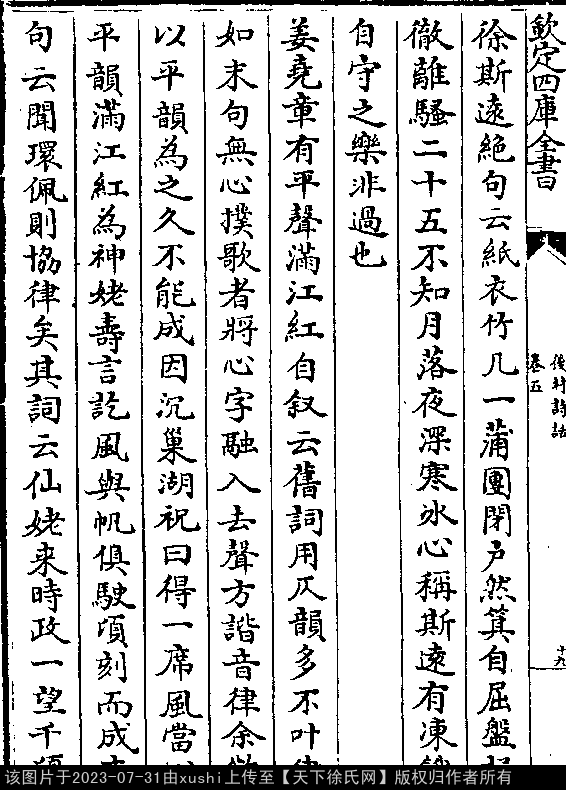 欽定四庫全書
後村詩話
卷五
十九
徐斯遠絶句云紙衣竹几一蒲團閉户然萁自屈盤
徹離騷二十五不知月落夜深寒氷心稱斯遠有凍
自守之樂非過也
姜堯章有平聲滿江紅自叙云舊詞用仄韻多不叶
如末句無心撲歌者將心字融入去聲方諧音律余
以平韻為之久不能成因沉巢湖祝曰得一席風當
平韻滿江紅為神姥壽言訖風與帆俱駛頃刻而成
句云聞環佩則協律矣其詞云仙姥来時政一望千
该图片于2023-07-31由xushi上传至【天下徐氏网】版权归作者所有